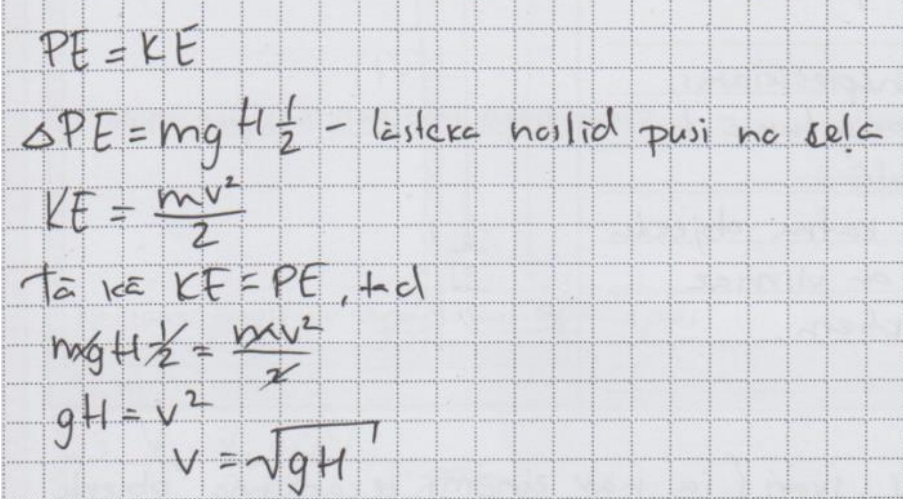 PE = KE
ΔPE = mg H 1/2 - lāsteka noslīd pusi no ceļa
KE = mv²/2
Tā kā KE = PE, tad
mgH 1/2 = mv²/2
gH = v²
v = √gH